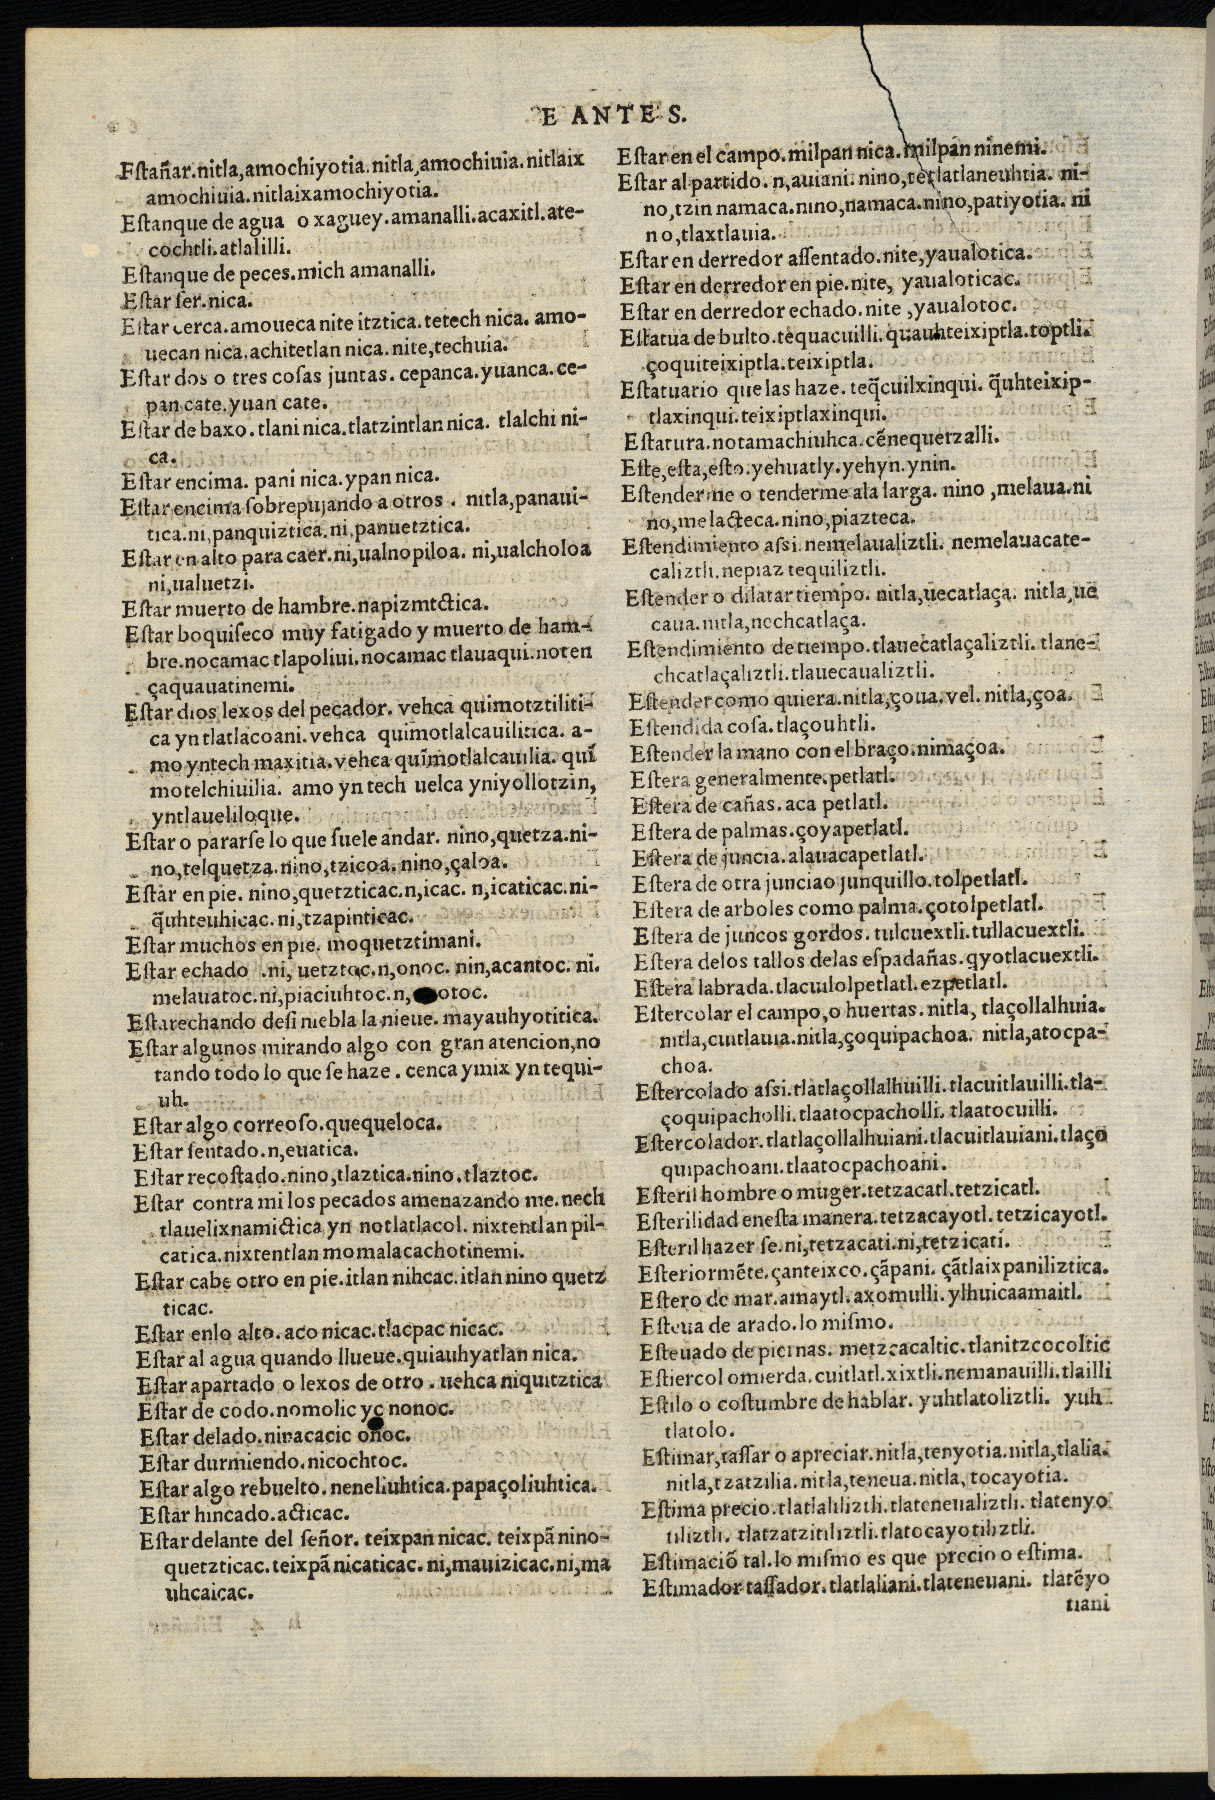 E ANTES.
Eſtañar.nitla,amochiyotia.nitla,amochiuia.nitlaix
amochiuia.nitlaixamochiyotia.
Eſtanque de agua o xaguey.amanalli.acaxitl.ate-
cochtli.atlalilli.
Eſtanque de peces.mich amanalli.
Eſtar ſer.nica.
Eſtar cerca.amoueca nite itztica.tetech nica. amo-
uecan nica.achitetlan nica.nite,techuia.
Eſtar dos o tres coſas juntas. cepanca.yuanca.ce-
pan cate.yuan cate.
Eſtar de baxo.tlani nica.tlatzintlan nica. tlalchi ni-
ca.
Eſtar encima. pani nica.ypan nica.
Eſtar encima ſobrepujando a otros . nitla,panaui-
tica.ni,panquiztica.ni,panuetztica.
Eſtar en alto para caer.ni,ualnopiloa. ni,ualcholoa
ni,ualuetzi.
Eſtar muerto de hambre.napizmictica.
Eſtar boquiſeco muy fatigado y muerto de ham-
bre.nocamac tlapoliui.nocamac tlauaqui.noten
çaquauatinemi.
Eſtar dios lexos del pecador. vehca quimotztiliti-
ca yn tlatlacoani.vehca quimotlalcauilitica. a-
mo yntech maxitia.vehca quĩmotlalcauilia. quĩ
motelchiuilia. amo yn tech uelca yniyollotzin,
yntlaueliloque.
Eſtar o pararſe lo que ſuele andar. nino,quetza.ni-
no,telquetza.nino,tzicoa.nino,çaloa.
Eſtar en pie. nino,quetzticac.n,icac. n,icaticac.ni-
q̃uhteuhicac.ni,tzapinticac.
Eſtar muchos en pie. moquetztimani.
Eſtar echado .ni,uetztoc.n,onoc. nin,acantoc. ni.
melauatoc.ni,piaciuhtoc.n, otoc.
Eſtarechando deſi niebla la nieue. mayauhyotitica.
Eſtar algunos mirando algo con gran atencion,no
tando todo lo que ſe haze . cenca ymix yn tequi-
uh.
Eſtar algo correoſo.quequeloca.
Eſtar ſentado.n,euatica.
Eſtar recoſtado.nino,tlaztica.nino.tlaztoc.
Eſtar contra mi los pecados amenazando me.nech
tlauelixnamictica yn notlatlacol. nixtentlan pil-
catica.nixtentlan momalacachotinemi.
Eſtar cabe otro en pie.itlan nihcac.itlan nino quetz
ticac.
Eſtar enlo alto. aco nicac.tlacpac nicac.
Eſtar al agua quando llueue.quiauhyatlan nica.
Eſtar apartado o lexos de otro . uehca niquitztica
Eſtar de codo.nomolic yc nonoc.
Eſtar delado.nipacacic onoc.
Eſtar durmiendo.nicochtoc.
Eſtar algo rebuelto.neneliuhtica.papaçoliuhtica.
Eſtar hincado.acticac.
Eſtar delante del ſeñor. teixpan nicac. teixpã nino-
quetzticac.teixpã nicaticac. ni,mauizicac.ni,ma
uhcaicac.
Eſtar en el campo.milpan nica.milpan ninemi.
Eſtar al partido. n,auiani. nino,tetlatlaneuhtia. ni-
no,tzin namaca.nino,namaca.nino,patiyotia. ni
no,tlaxtlauia.
Eſtar en derredor aſſentado.nite,yaualotica.
Eſtar en derredor en pie.nite, yaualoticac.
Eſtar en derredor echado.nite ,yaualotoc.
Eſtatua de bulto.tequacuilli.quauhteixiptla.toptli.
çoquiteixiptla.teixiptla.
Eſtatuario que las haze. teq̃cuilxinqui. q̃uhteixip-
tlaxinqui.teixiptlaxinqui.
Eſtatura.notamachiuhca.cẽnequetzalli.
Eſte,eſta,eſto.yehuatly.yehyn.ynin.
Eſtenderme o tenderme ala larga. nino ,melaua.ni
no,melacteca.nino,piazteca.
Eſtendimiento aſsi.nemelaualiztli. nemelauacate-
caliztli.nepiaz tequiliztli.
Eſtender o dilatar tiempo. nitla,uecatlaça. nitla,ue
caua.nitla,nechcatlaça.
Eſtendimiento de tiempo.tlauecatlaçaliztli. tlane-
chcatlaçaliztli.tlauecaualiztli.
Eſtender como quiera.nitla,çoua.vel. nitla,çoa.
Eſtendida coſa.tlaçouhtli.
Eſtender la mano con el braço.nimaçoa.
Eſtera generalmente.petlatl.
Eſtera de cañas. aca petlatl.
Eſtera de palmas.çoyapetlatl.
Eſtera de juncia.alauacapetlatl.
Eſtera de otra junciao junquillo.tolpetlatl.
Eſtera de arboles como palma.çotolpetlatl.
Eſtera de juncos gordos. tulcuextli.tullacuextli.
Eſtera delos tallos delas eſpadañas.qyotlacuextli.
Eſtera labrada.tlacuilolpetlatl.ezpetlatl.
Eſtercolar el campo,o huertas.nitla, tlaçollalhuia.
nitla,cuitlauia.nitla,çoquipachoa. nitla,atocpa-
choa.
Eſtercolado aſsi.tlatlaçollalhuilli.tlacuitlauilli.tla-
çoquipacholli.tlaatocpacholli. tlaatocuilli.
Eſtercolador.tlatlaçollalhuiani.tlacuitlauiani.tlaço
quipachoani.tlaatocpachoani.
Eſteril hombre o muger.tetzacatl.tetzicatl.
Eſterilidad eneſta manera.tetzacayotl.tetzicayotl.
Eſteril hazer ſe.ni,tetzacati.ni,tetzicati.
Eſteriormẽte.çanteixco.çãpani. çãtlaixpaniliztica.
Eſtero de mar.amaytl.axomulli.ylhuicaamaitl.
Eſteua de arado.lo miſmo.
Eſteuado de piernas. metzcacaltic.tlanitzcocoltic
Eſtiercol omierda.cuitlatl.xixtli.nemanauilli.tlailli
Eſtilo o coſtumbre de hablar. yuhtlatoliztli. yuh
tlatolo.
Eſtimar,taſſar o apreciar.nitla,tenyotia.nitla,tlalia.
nitla,tzatzilia.nitla,teneua.nitla, tocayotia.
Eſtima precio.tlatlaliliztli.tlateneualiztli. tlatenyo
tiliztli. tlatzatzitiliztli.tlatocayotiliztli.
Eſtimaciõ tal.lo miſmo es que precio o eſtima.
Eſtimador taſſador.tlatlaliani.tlateneuani. tlatẽyo
tiani